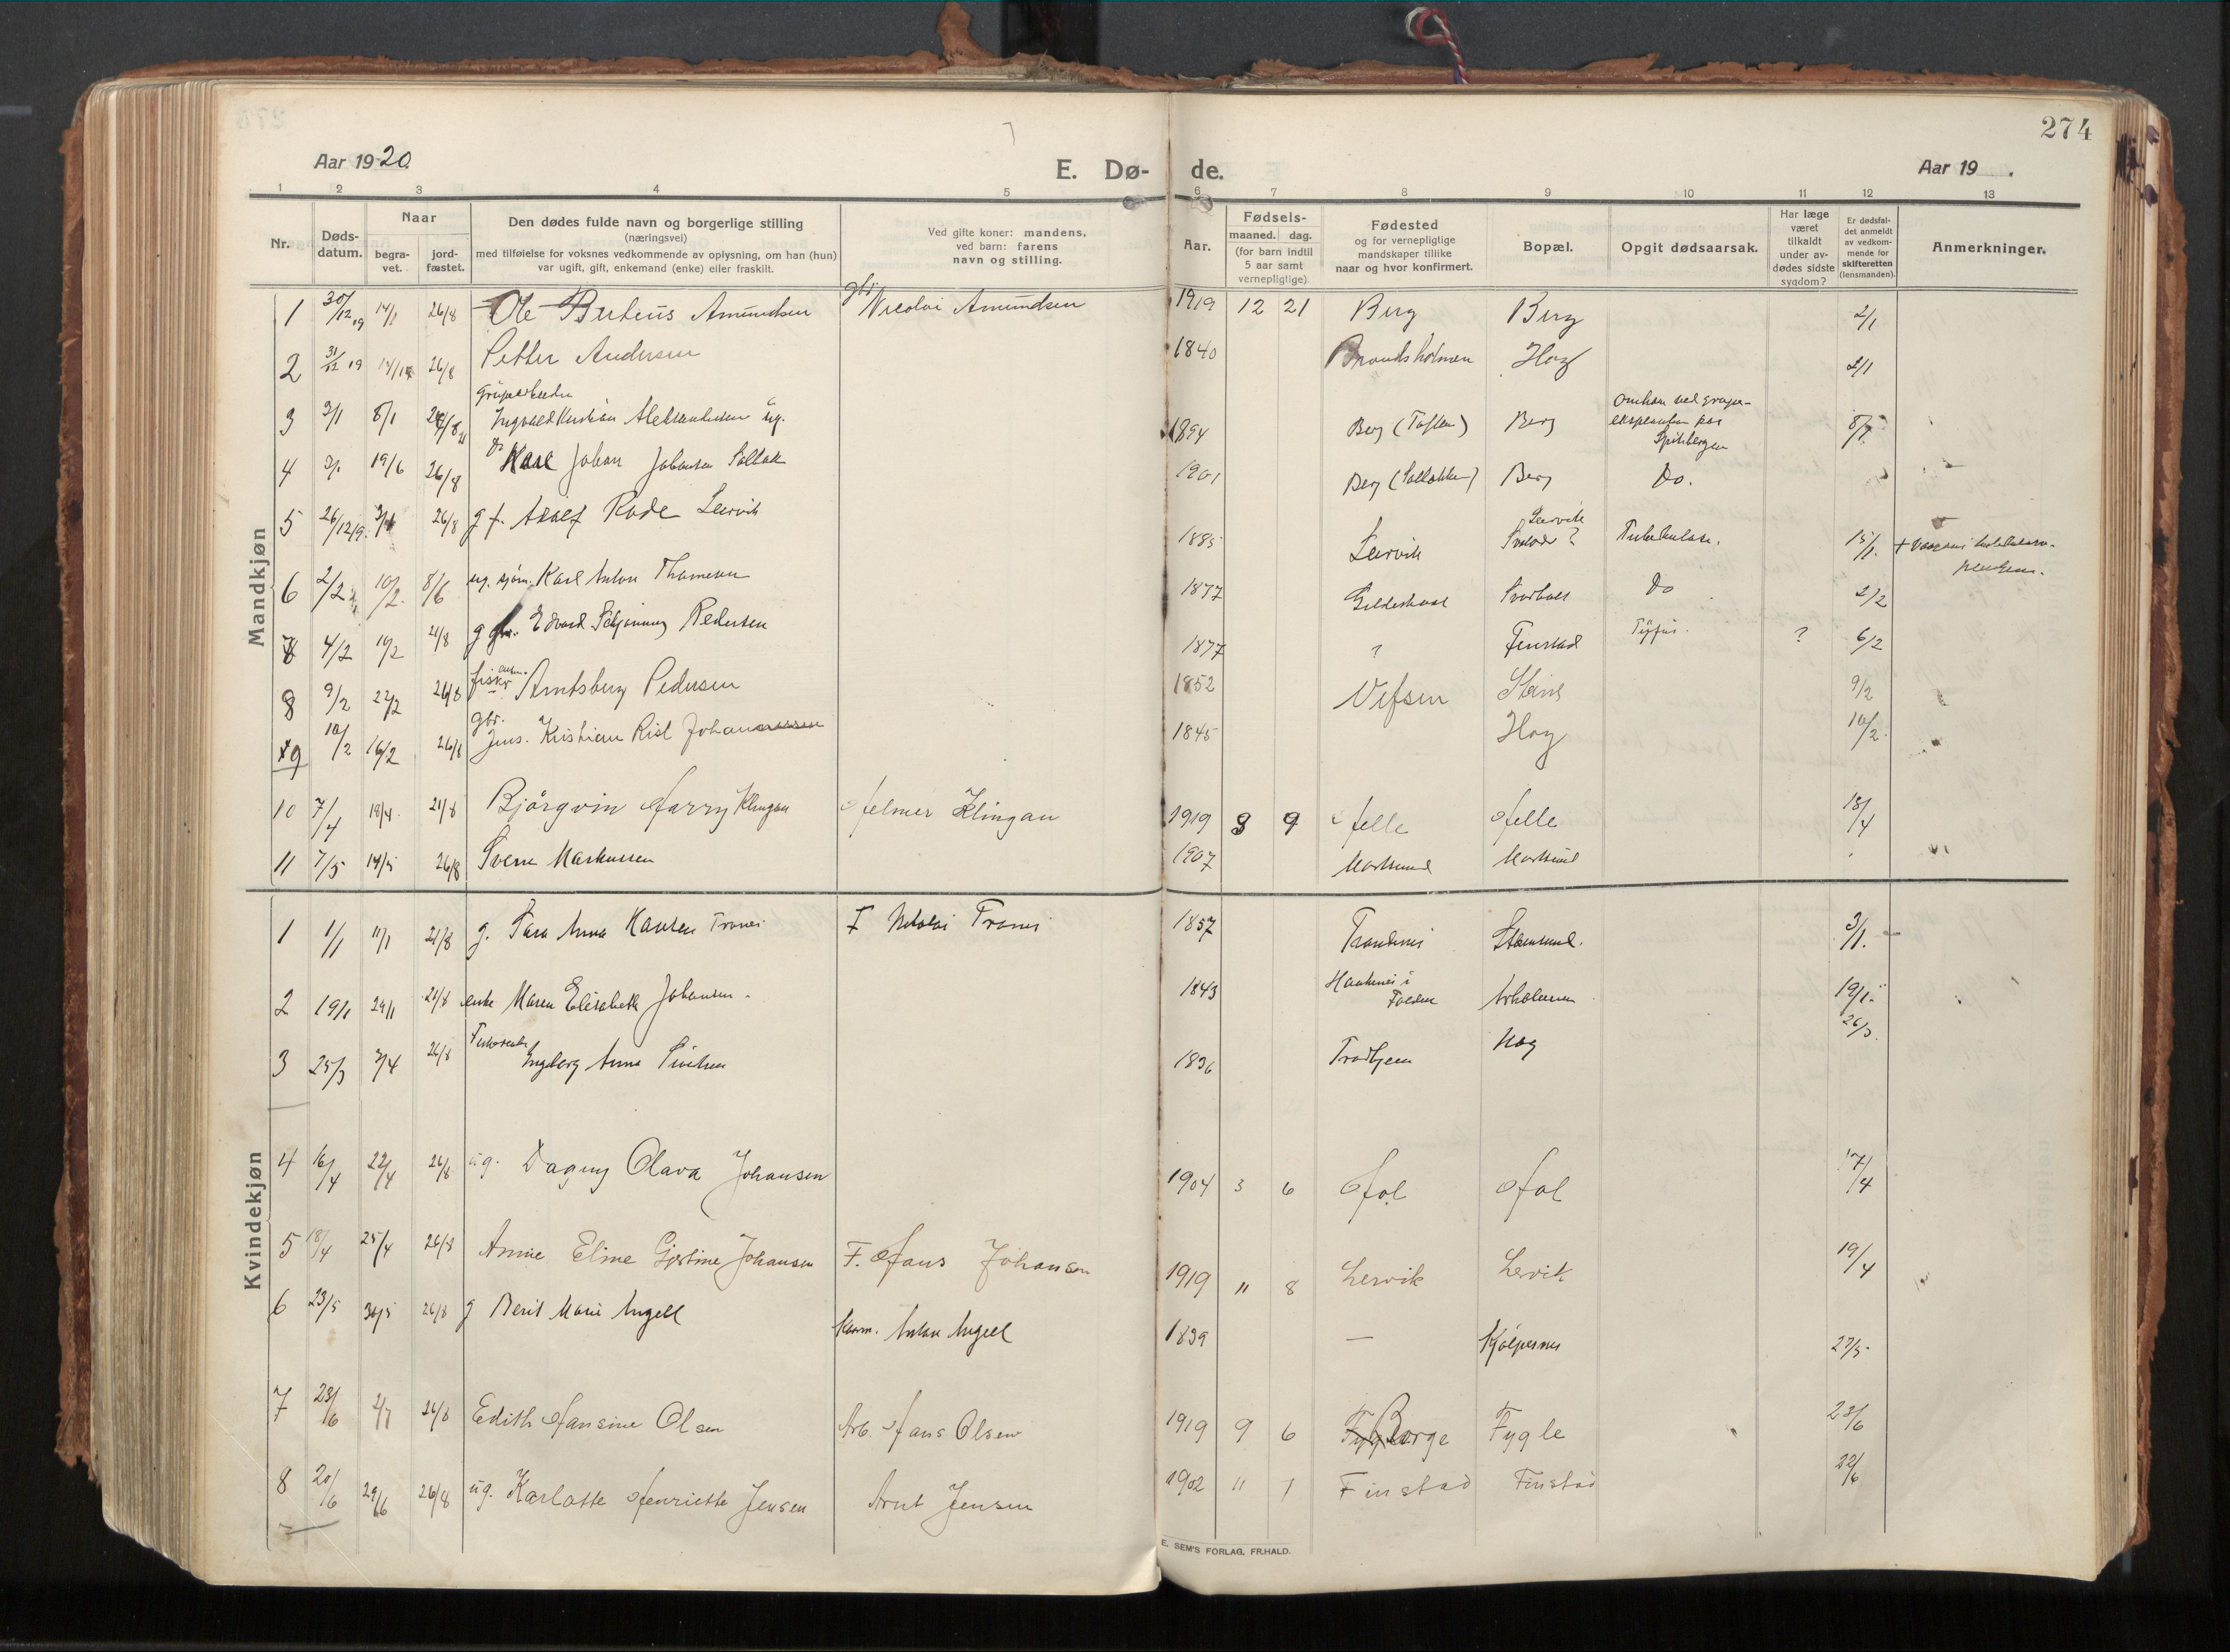 274
Aar 1920.
E. Dø- de.
Aar 19 .
1 2 3 4 5 6 7 8 9 10 11 12 13
Nr.
Døds-
datum.
Naar
begra-
vet.
jord-
fæstet.
Den dødes fulde navn og borgerlige stilling
(næringsvei)
med tilføielse for voksnes vedkommende av oplysning, om han (hun)
var ugift, gift, enkemand (enke) eller fraskilt.
Ved gifte koner: mandens,
ved barn: farens
navn og stilling.
Aar.
Fødsels-
maaned. dag.
(for barn indtil
5 aar samt
vernepligtige)
Fødested
og for vernepligtige
mandskaper tillike
naar og hvor konfirmert.
Bopæl.
Opgit dødsaarsak.
Har læge
været
tilkaldt
under av-
dødes sidste
sygdom?
Er dødsfal-
det anmeldt
av vedkom-
mende for
skifteretten
(lensmanden).
Anmerkninger.
Mandkjøn
1 30/12 19 14/1 26/8 Ole Berteus Amundsen gbr. Nicolai Amundsen 1919 12 21 Berg Berg 2/1
2 31/12 19 14/1 26/8 Petter Andersen 1840 Brandsholmen Hag 2/1
3 3/1 8/1 Grubearbeider Ingvald Kristian Aleksandersen ug. 1894 Berg (Toften) Berg Omkom ved grube-
eksplosion paa
Spitsbergen 8/1
4 3/1 19/6 26/8 Do Karl Johan Johansen 1901 Berg Berg Do.
5 26/12 19. 26/8 g f. Adolf Rode Leervik 1885 Leervik Leervik ? Tuberkulose. 15/1.
6 2/2 10/2 8/6 ug. sjøm. Karl Anton Thomesen 1877 Gildeskaal Svarholt Do 2/2
7 4/2 10/2 21/8 g gbr. Edvard Schjønning Pedersen 1877 ? Finstad Tyfus. ? 6/2
8 9/2 22/2 26/8 fisker enkem. Arntsberg Pedersen 1852 Vefsen Steine 9/2
9 10/2 16/2 26/8 gbr. Jens Kristian Rist Johannessen 1845 Hag 10/2
10 7/4 18/4 21/8 Bjørgvin Harry Klingan Helmer Klingan 1919 9 9 Helle Helle 18/4
11 7/5 14/5 26/8 Sverre Markussen 1907 Mortsund Mortsund
Kvindekjøn
1 1/1 11/1 21/8 g. Sara Anna Hansen Trones F Nikolai Trones 1857 Trondenes Stamsund. 3/1.
2 19/1 29/1 21/8 enke Maren Elisabeth Johansen 1843 Hauknes i
Folden Arholmen 19/1
3 25/3 3/4 26/8 Ingeborg Anna 1836 Trondhjem Hag 26/3.
4 16/4 22/4 26/8 ug. Dagny Olava Johansen 1904 3 6 Hol Hol 17/4
5 18/4 25/4 26/8 Anne Eline Gjertine Johansen F. Hans Johansen 1919 11 8 Lervik Lervik 19/4
6 23/5 30/5 26/8 g Berit Marie Angell Anton Angell 1839 — Kjølpernes 27/5
7 23/6 2/7 26/8 Edith Hansine Olsen Arb. Hans Olsen 1919 9 6 Borge Fygle 23/6
8 20/6 29/6 26/8 ug. Karlotte Henriette Jensen Arnt Jensen 1902 11 7 Finstad Finstad 22/6
E. SEM'S FORLAG, FR.HALD.